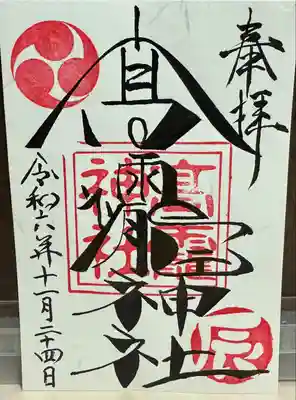 奉拝
髙龗神社
令和六年十一月二十四日
神社
辰